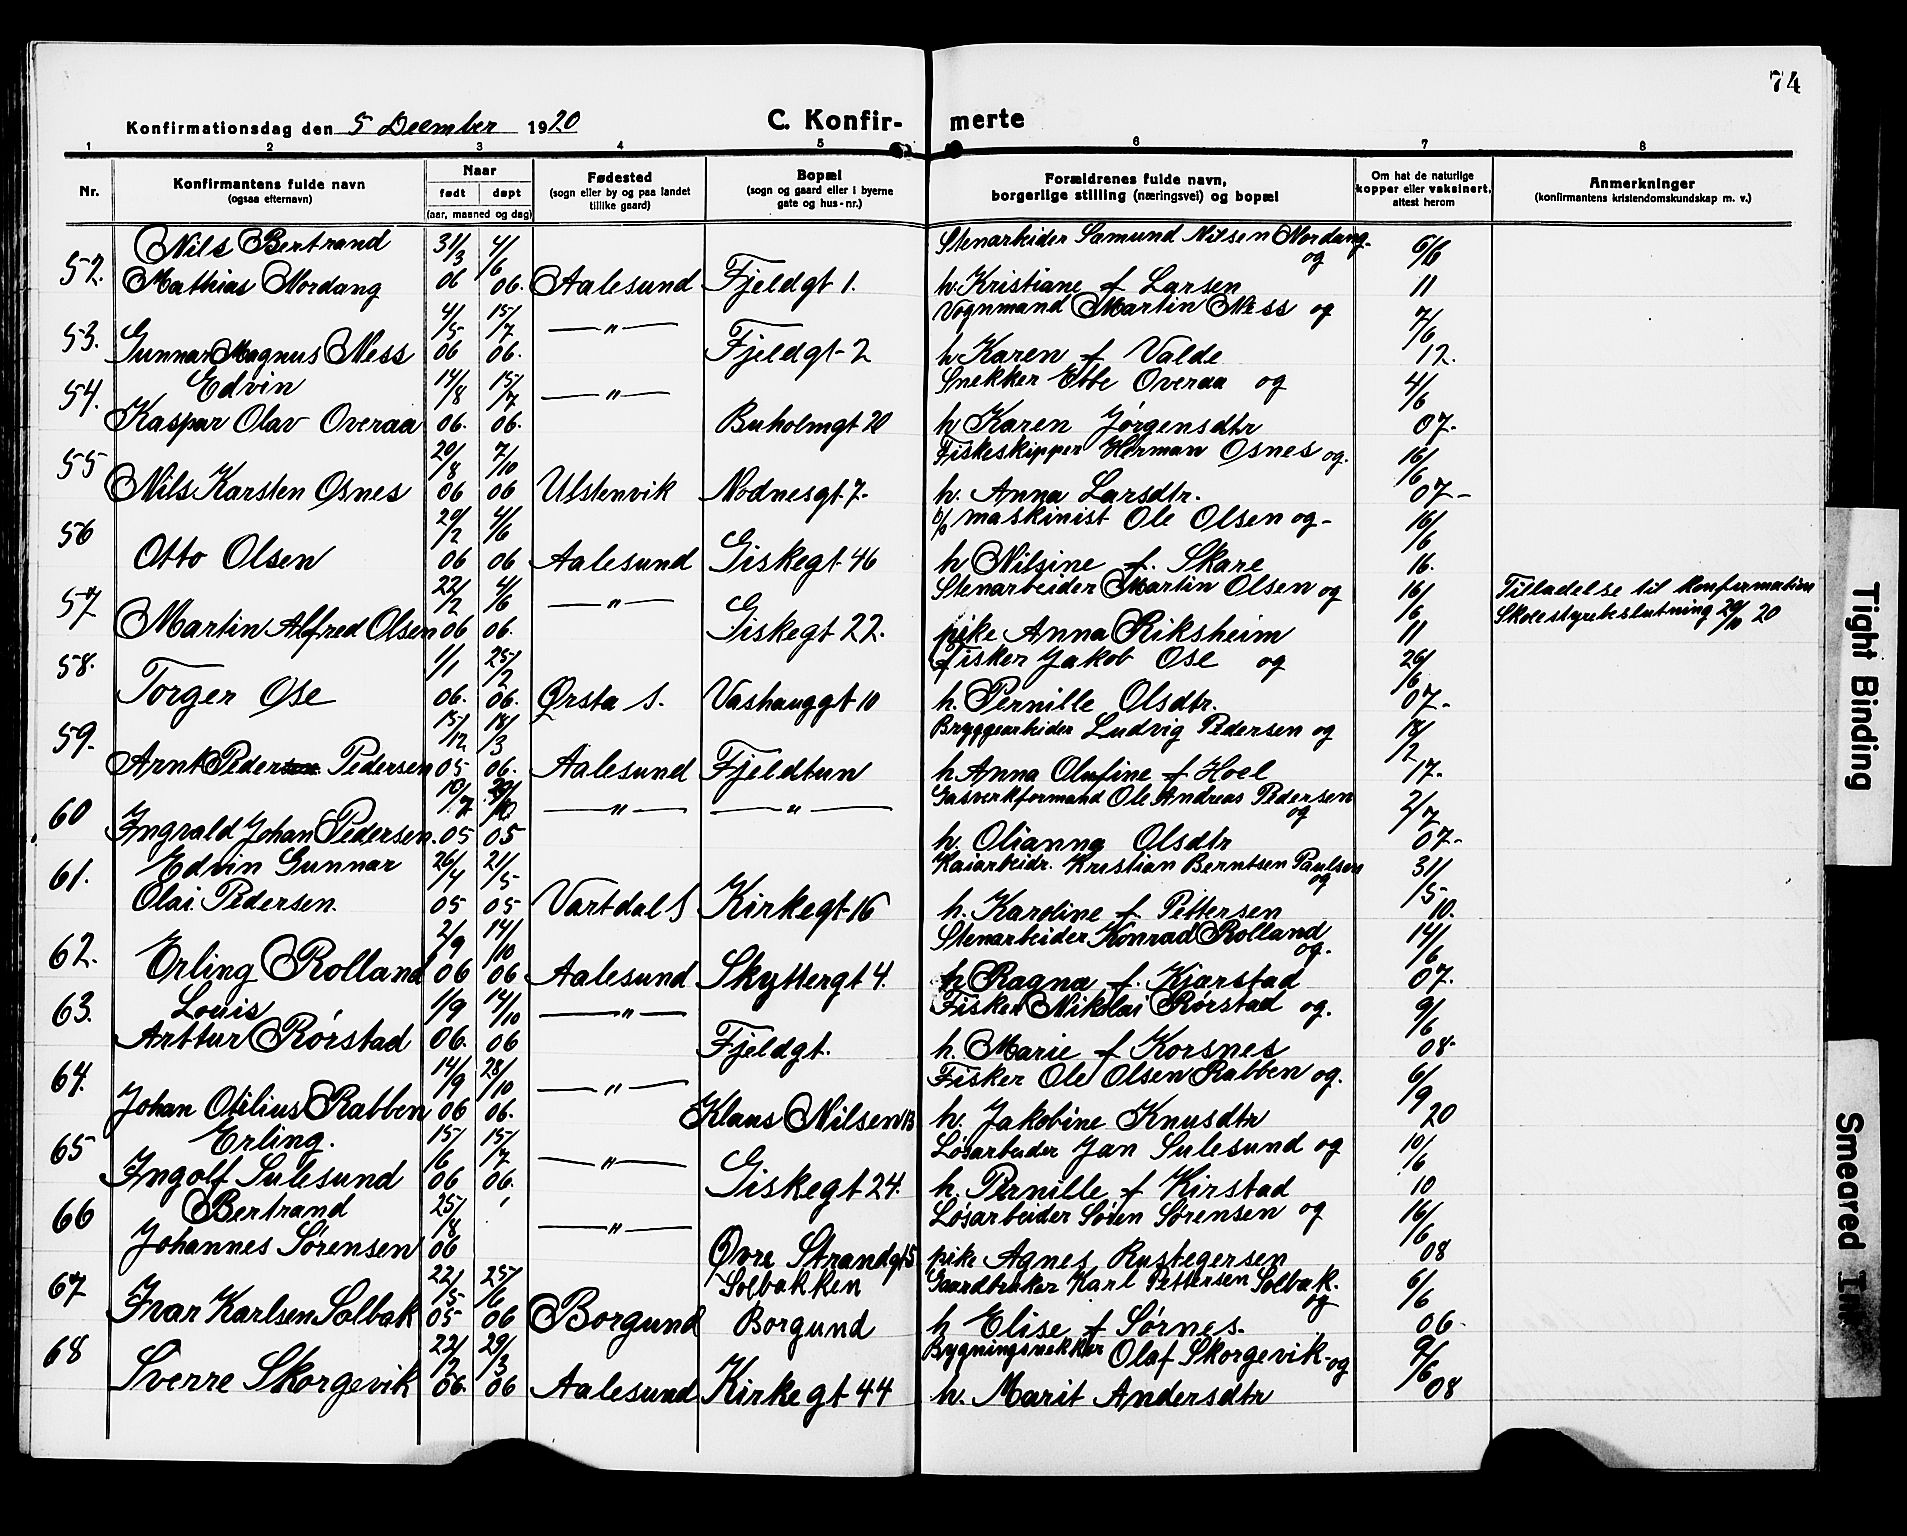 74
Konfirmationsdag den 5 Deember 1920 C. Konfir- merte
1 2 3 4 5 6 7 8
Nr. Konfirmantens fulde navn (ogsaa efternavn) Naar født døpt (aar, maaned og dag) Fødested (sogn eller by og paa landet tillike gaard) Bopæl (sogn og gaard eller i byerne gate og hus-nr.) Forældrenes fulde navn, borgerlige stilling (næringsvei) og bopæl Om hat de naturlige kopper eller vaksinert, attest herom Anmerkninger (konfirmantens kristendomskundskap m. v.)
52. Nils Bertrand 31/3 4/6 Stenarbeider Samund Nilsen Nordang og 6/6
Mathias Nordang 06 06. Aalesund Fjeldgt 1. h. Kristiane f Larsen 11
53. 4/5 15/7 —"— Vognmand Martin Ness og 7/6
Gunnar Magnus Ness 06 06. Fjeldgt-2 h Karen f Valde 12.
54. Edvin 14/8 15/7 —"— Snekker Ebbe Overaa og 4/6
Kaspar Olav Overaa 06. 06. Buholmgt 20 h Karen Jørgensdtr 07.
55 20/8 7/10 Fiskeskipper Herman Osnes og. 16/6
Nils Karsten Osnes 06 06 Ulstenvik Nodnesgt 7. h. Anna Larsdtr. 07-
56 20/2 4/6 maskinist Ole Olsen og- 16/6
Otto Olsen 06 06 Aalesund Giskegt 46 h Nilsine f. Skare 16.
57 22/2 4/6 —"— Stenarbeider Martin Olsen og 16/6 Tilladelse til konfirmation
Martin Alfred Olsen 06 06. Giskegt 22. pike Anna Riksheim 11 Skolestyrebeslutning 29/10 20
58. 1/1 25/2 Fisker Jakob Ose og 26/6
Torger Ose 06. 06. Ørsta S. Vashauggt 10 h. Pernille Olsdtr. 07-
59. 15/12 18/3 Bryggearbeider Ludvig Pedersen og 18/2
Arnt Pedersen Pedersen 05 06. Aalesund Fjeldtun h Anna Olufine f Hoel 17.
60 10/7 /10 —"— —"— Gasverkformand Ole Andreas Pedersen og 2/7
Ingvald Johan Pedersen. 05 05 h. Olianna Olsdtr 07-
61. Edvin Gunnar 26/4 21/5 Kaiarbeidr. Kristian Berntsen Paulsen og 31/5
Olai Pedersen. 05 05 Vartdal S Kirkegt-16 h. Karoline f Pettersen 10.
62. 2/9 14/10 Stenarbeider Konrad Rolland og. 14/6
Erling Rolland 06 06 Aalesund Skyttergt 4. h Ragna f. Kjarstad 07.
63. Louis 1/9 14/10 —"— Fisker Nikolai Rørstad og. 9/6
Arttur Rørstad 06. 06 Fjeldgt. h. Marie f Korsnes 08-
64. 14/9 28/10 —"— Fisker Ole Olsen Rabben og. 6/9
Johan Otilius Rabben 06 06. Klaus Nilsen 13 h. Jakobine Knusdtr 20
65 Erling. 15/6 15/7 —"— Løsarbeider Jan Sulesund og 10/6
Ingolf Sulesund 06 06. Giskegt 24. h. Pernille f Kirstad 10
66 Bertrand 25/8 —"— Løsarbeider Søren Sørensen og 16/6
Johannes Sørensen 06 Øvre Strandgt 5 pike Agnes Rustegersen 08
67 22/5 25/6 Solbakken Gaardbruker Karl Pettersen Solbak. og 6/6
Ivar Karlsen Solbak 05 06 Borgund Borgund h Elise f Sørnes. 06-
68 22/2 29/3 Bygningsnekker Olaf Skorgevik-og 9/6
Sverre Skorgevik 06. 06 Aalesund Kirkegt 44 h. Marit Andersdtr 08
Tight Binding
Smeared Ink